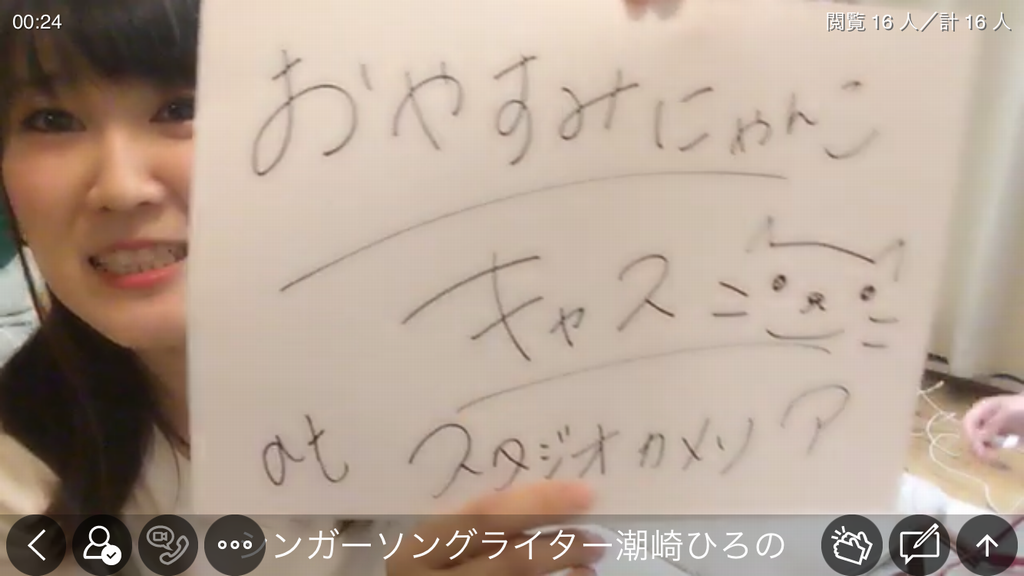 00:24
閲覧 16 人／計 16 人
おやすみにゃんこ
キャス
at スタジオカメリア
ンガーソングライター潮崎ひろの